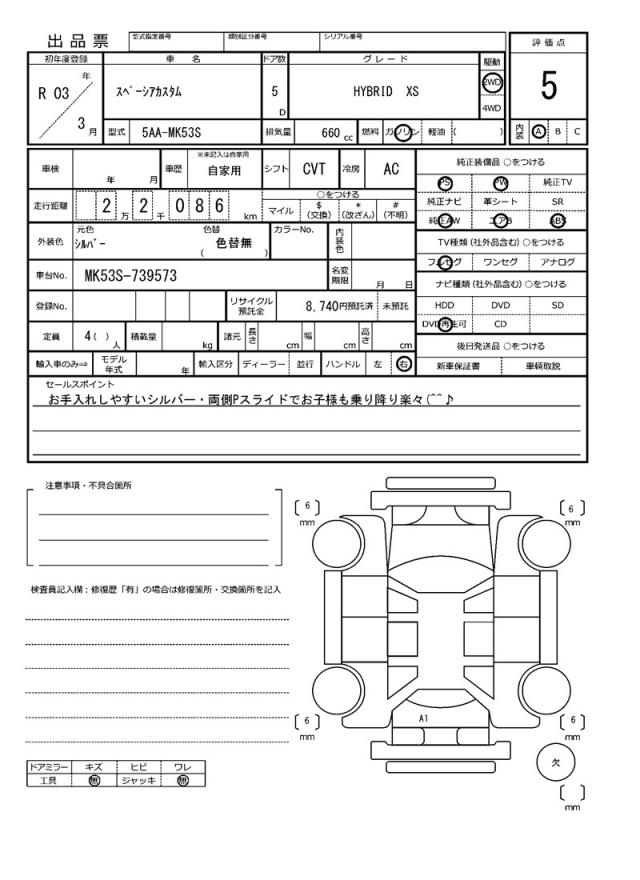 出品票
型式指定番号 類別区分番号 シリアル番号
初年度登録 車 名 ドア数 グレード 駆動 評価点
R 03 年 3 月
スペーシアカスタム 5 D HYBRID XS 2WD 4WD 5
型式 5AA-MK53S 排気量 660 cc 燃料 ガソリン 軽油 ( ) 内装 A B C
車検 年 月 車歴 ※未記入は自家用 自家用 シフト CVT 冷房 AC
純正装備品 ○をつける
PS PW 純正TV
純正ナビ 革シート SR
純正AW エアB ABS
走行距離 2 万 2 千 0 8 6 km
○をつける
マイル $ (交換) * (改ざん) # (不明)
外装色 元色 シルバー 色替 色替無 ( ) カラーNo. 内装色
TV種類 (社外品含む) ○をつける
フルセグ ワンセグ アナログ
車台No. MK53S-739573 名変期限 月 日
ナビ種類 (社外品含む) ○をつける
HDD DVD SD
DVD再生可 CD
登録No. リサイクル預託金 8,740円預託済 未預託
定員 4 ( ) 人 積載量 kg 諸元 長さ cm 幅 cm 高さ cm
後日発送品 ○をつける
新車保証書 車輌取説
輸入車のみ⇒ モデル年式 年 輸入区分 ディーラー 並行 ハンドル 左 右
セールスポイント
お手入れしやすいシルバー・両側Pスライドでお子様も乗り降り楽々(^^♪
注意事項・不具合箇所
検査員記入欄：修復歴「有」の場合は修復箇所・交換箇所を記入
6 mm
6 mm
6 mm
6 mm
A1
欠
mm
ドアミラー キズ ヒビ ワレ
工具 無 ジャッキ 無